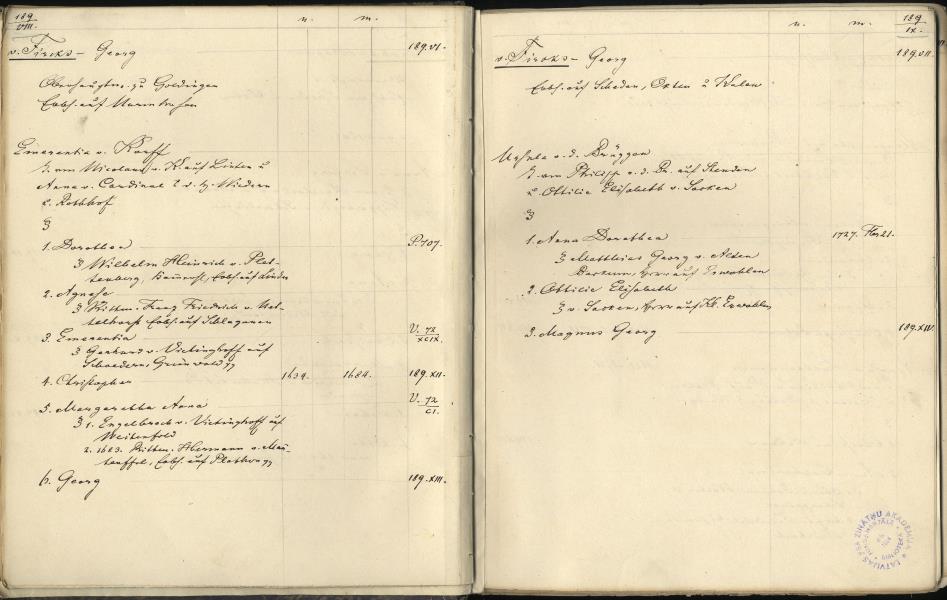 189
VIII.
n.
m.
v. Fircks - Georg
189. VI.
Oberhauptm. zu Goldingen
Erbh. auf Warwen
Emerentia v. Korff
T. von Nicolaus v. K. auf Lixten u
Anna v. Cardinal
2. Rothhof
1. Dorothea
P. 107.
Wilhelm Heinrich v. Plet-
tenberg, Erbh. auf Linden
2. Agnese
Rittm. Franz Friedrich v. Net-
telhorst Erbh. auf Schlaguenen
3. Emerentia
V. 72
XCIX.
Gerhard v. Vietinghoff auf
Schoedern, Grünwald
4. Christopher
1634.
1684.
189. XII.
5. Margaretha Anna
V. 72
CI.
1. Engelbrech v. Vietinghoff auf
Weitenfeld
2. 1683. Rittm. Hermann v. Man-
teuffel, Erbh. auf Platkon
6. Georg
189. XIII.
n.
m.
189
IX.
v. Fircks - Georg
189. VII.
Erbh. auf Scheden, Okten u Walen
v. d. Brüggen
T. von Philipp v. d. Br. auf Stenden
u. Ottilie Elisabeth v. Sacken
1. Anna Dorothea
1727. Febr 21.
Matthias Georg v. Alten
Bockum, Herr auf Erwahlen
2. Ottilie Elisabeth
v. Sacken, Herr auf Kl. Erwahlen
3. Magnus Georg
189. XIV.
LATVIJAS PSR ZINĀTŅU AKADĒMIJA
FUNDAMENTĀLĀ
BIBLIOTEKA